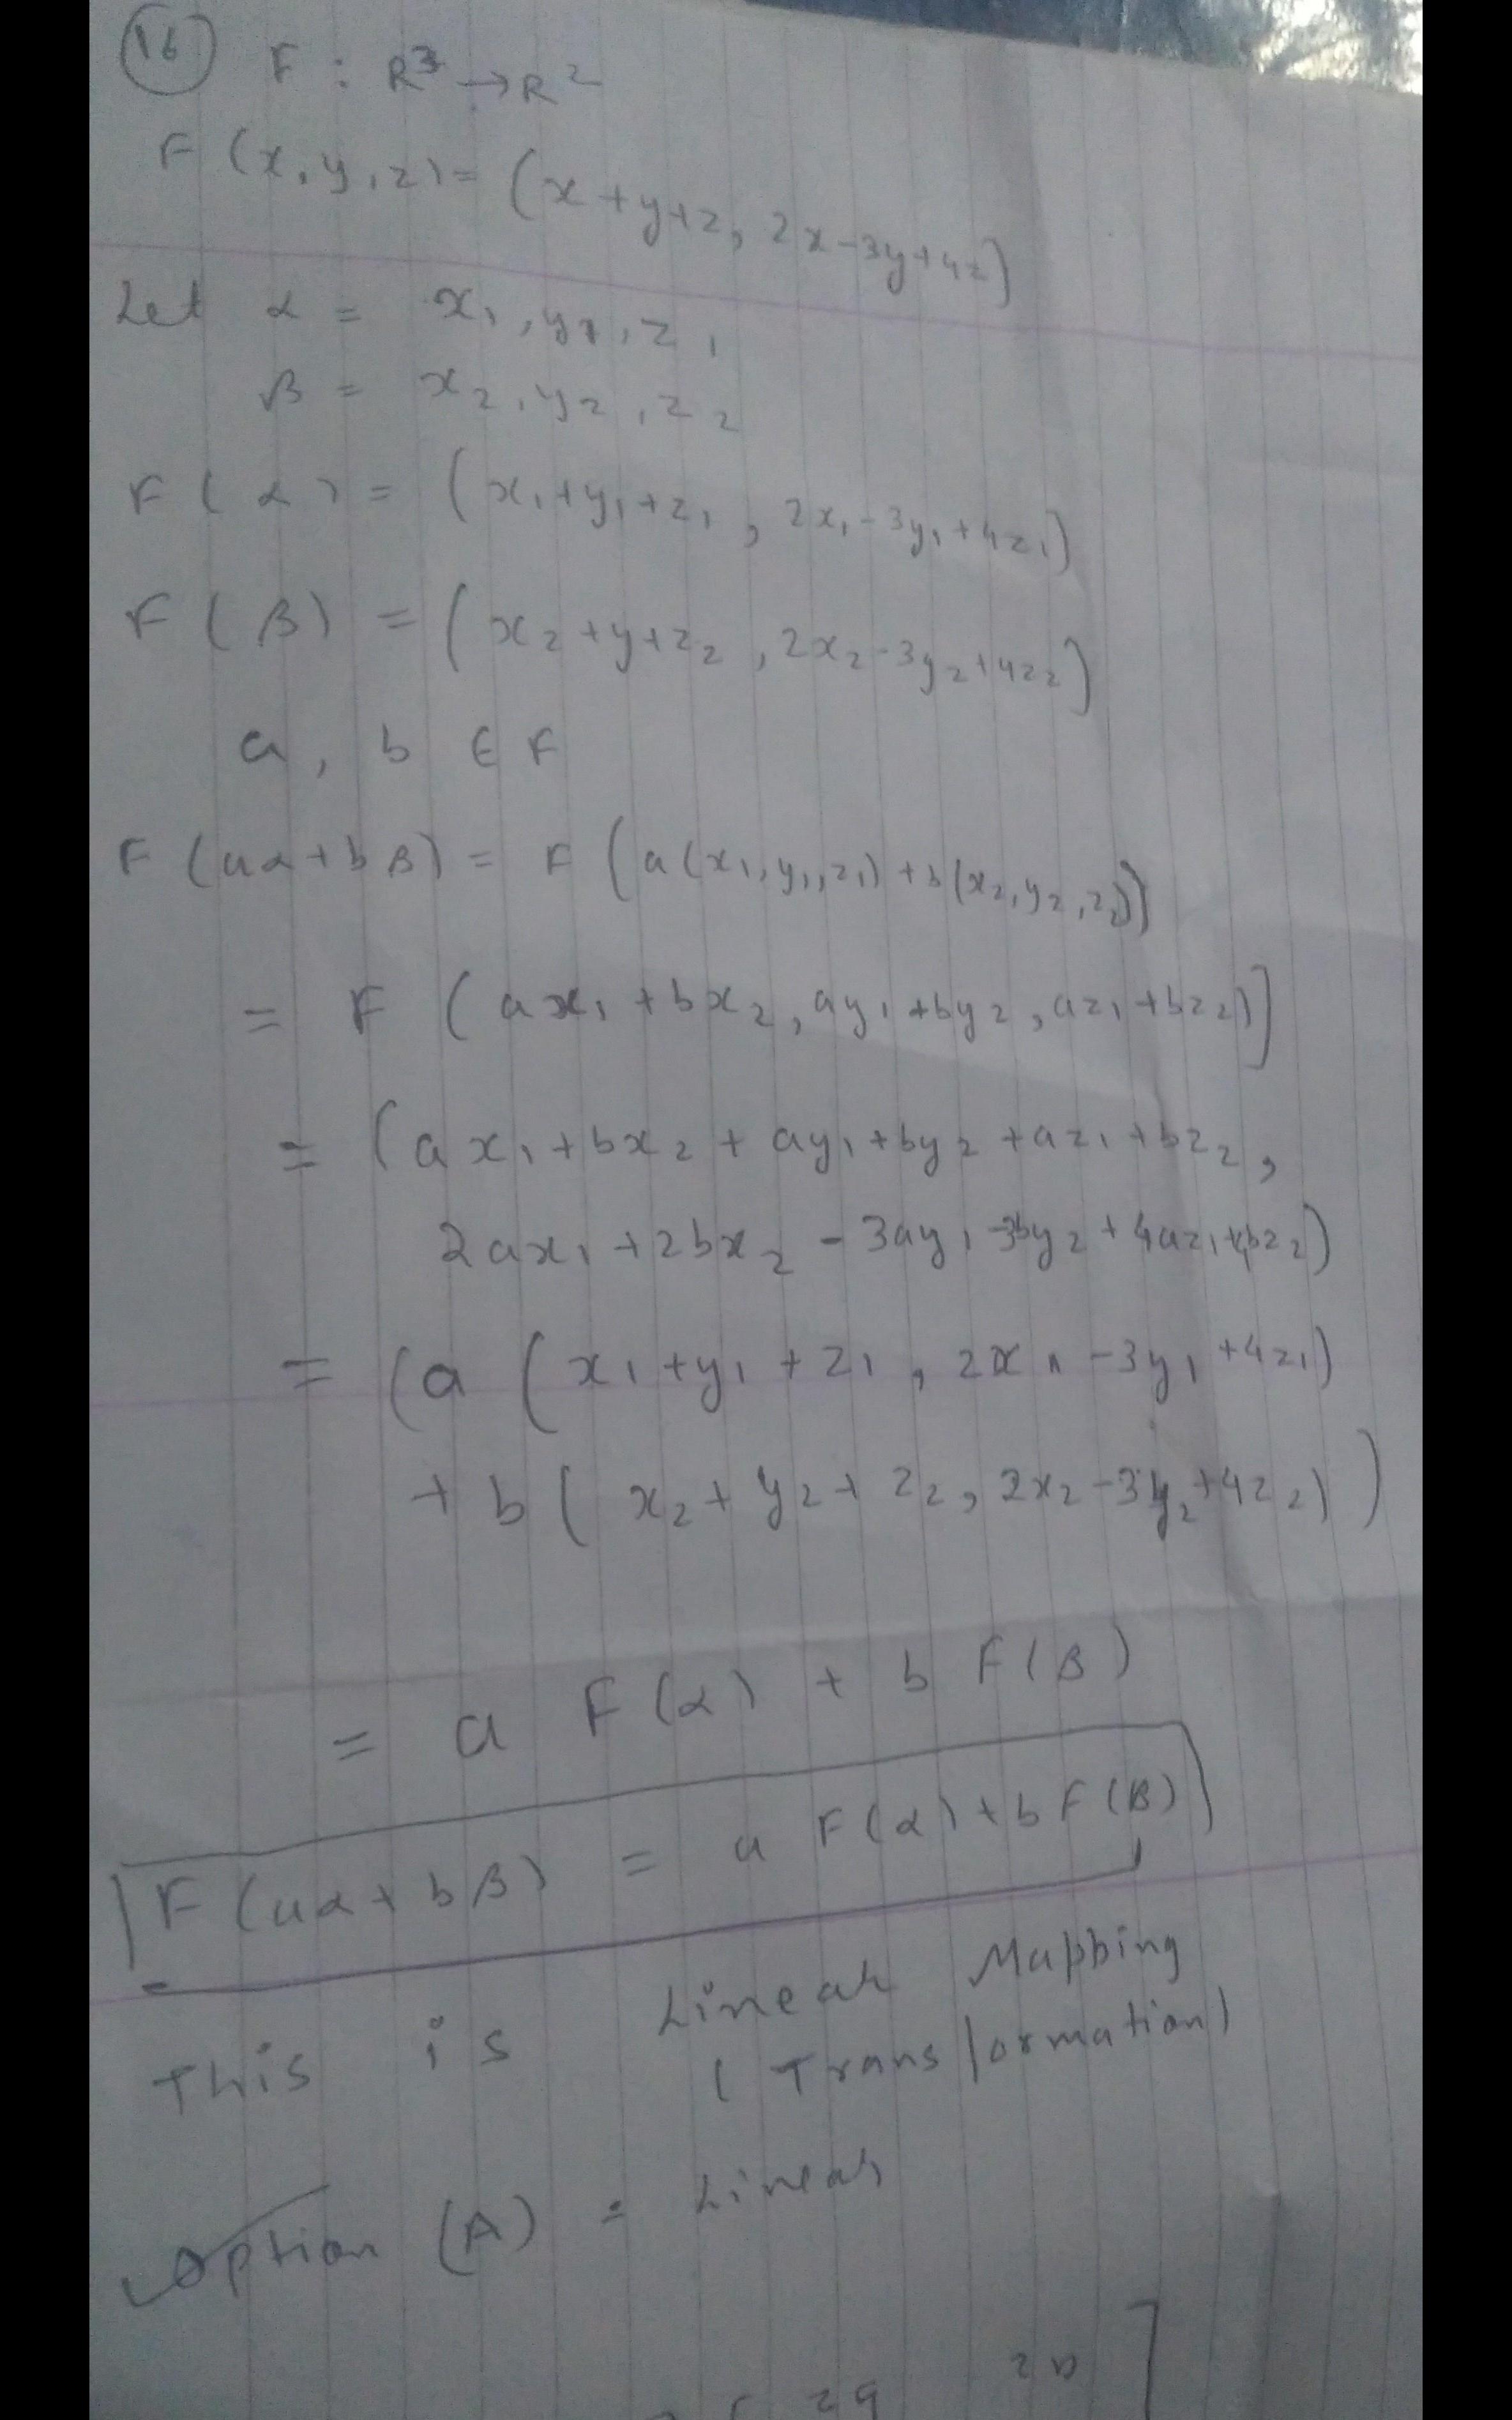 16 F : R³ → R²
F (x, y, z) = (x + y + z, 2x - 3y + 4z)
Let α = x₁, y₁, z₁
β = x₂, y₂, z₂
F (α) = (x₁ + y₁ + z₁, 2x₁ - 3y₁ + 4z₁)
F (β) = (x₂ + y + z₂, 2x₂ - 3y₂ + 4z₂)
a, b ∈ F
F (aα + bβ) = F (a(x₁, y₁, z₁) + b(x₂, y₂, z₂))
= F (ax₁ + bx₂, ay₁ + by₂, az₁ + bz₂)]
= (ax₁ + bx₂ + ay₁ + by₂ + az₁ + bz₂,
2ax₁ + 2bx₂ - 3ay₁ - 3by₂ + 4az₁ + 4bz₂)
= (a (x₁ + y₁ + z₁, 2x₁ - 3y₁ + 4z₁)
+ b (x₂ + y₂ + z₂, 2x₂ - 3y₂ + 4z₂))
= a F(α) + b F(β)
F (aα + bβ) = a F(α) + b F(β)
This is Linear Mapping
(Transformation)
Option (A) = Linear
29 20 ]